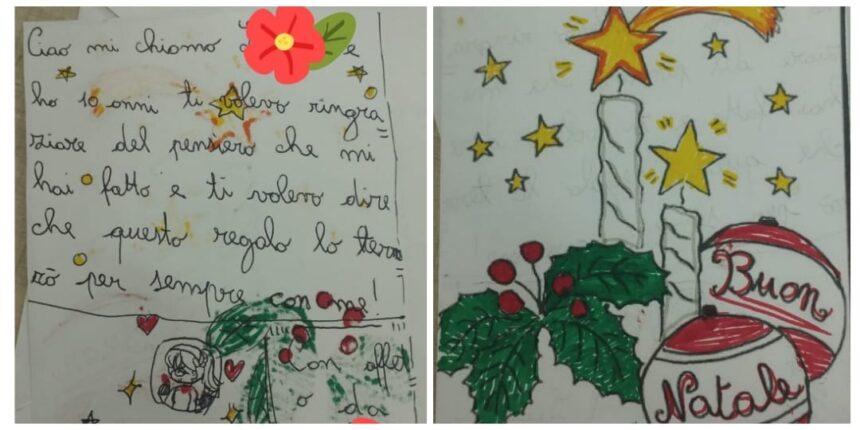 Ciao mi chiamo
ho 10 anni ti volevo ringra
ziare del pensiero che mi
hai fatto e ti volevo dire
che questo regalo lo terr
rò per sempre con me!
con affet
o da
Buon
Natale